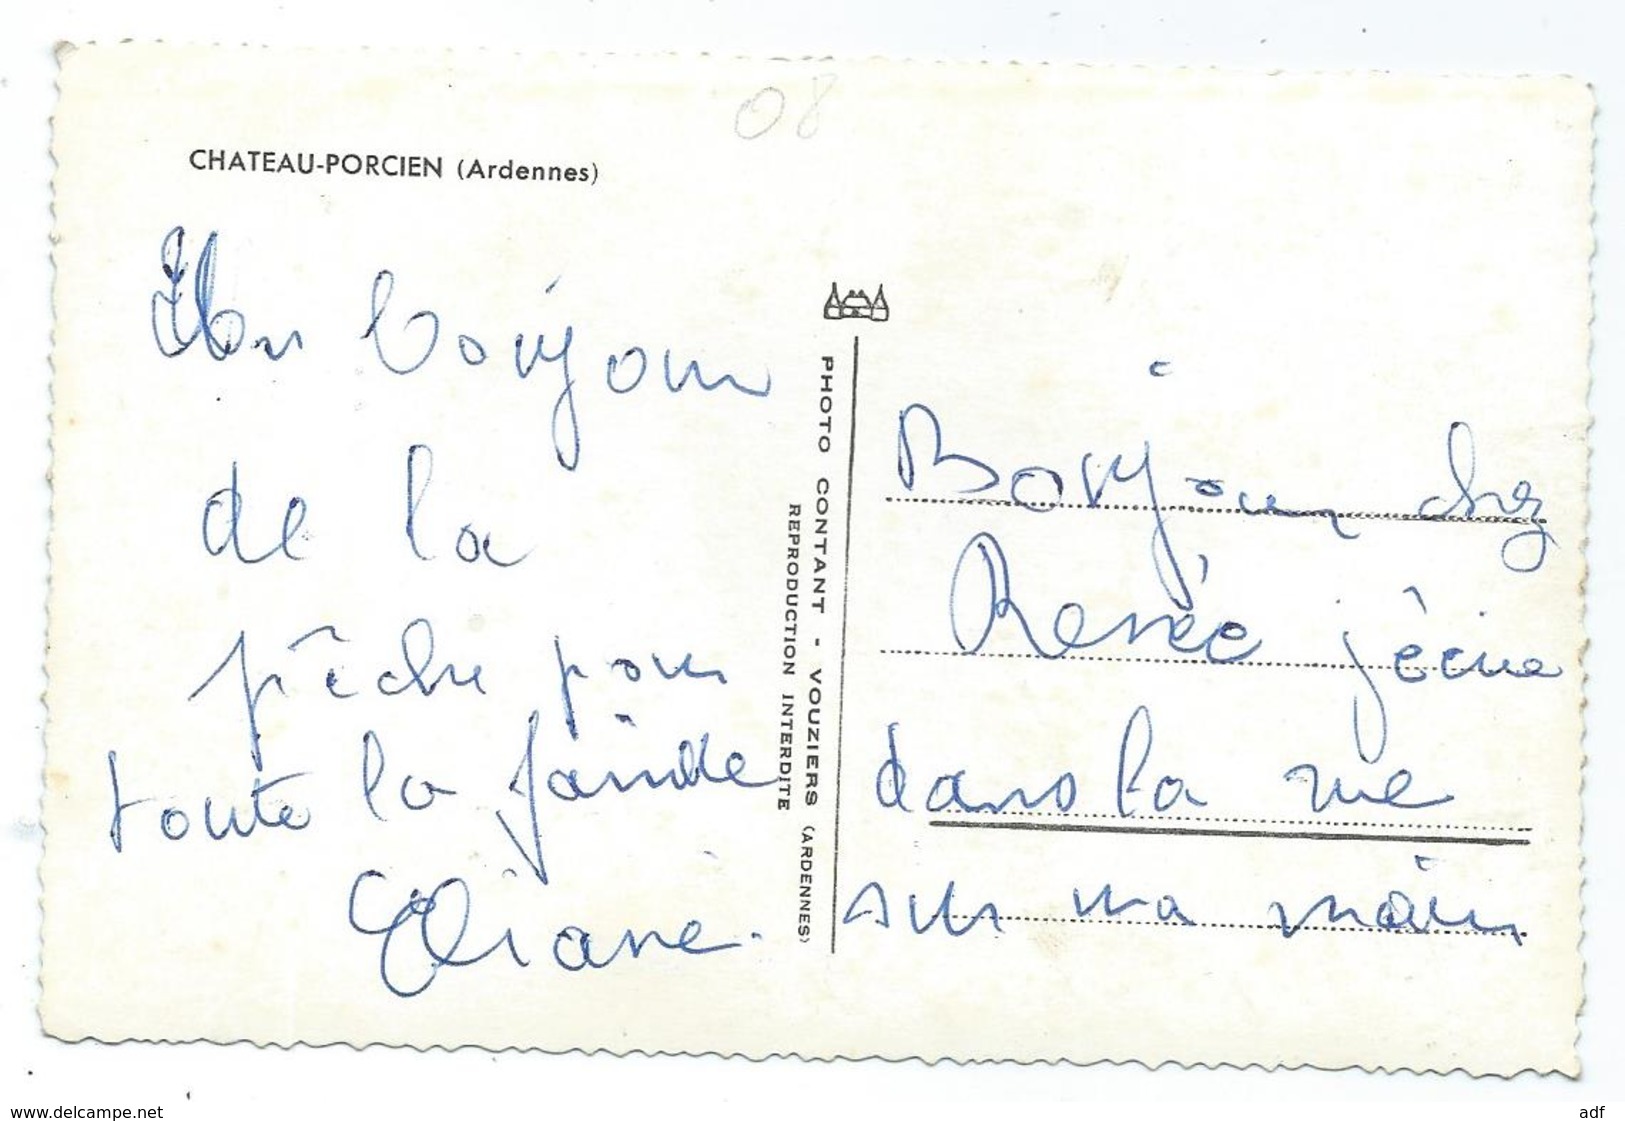 08
CHATEAU-PORCIEN (Ardennes)
Un bonjour
de la
pêche pour
toute la famille
Eliane.
PHOTO CONTANT - VOUZIERS (ARDENNES)
REPRODUCTION INTERDITE
Bonjour chez
Renée j'écris
dans la rue
sur ma main
www.delcampe.net
adf